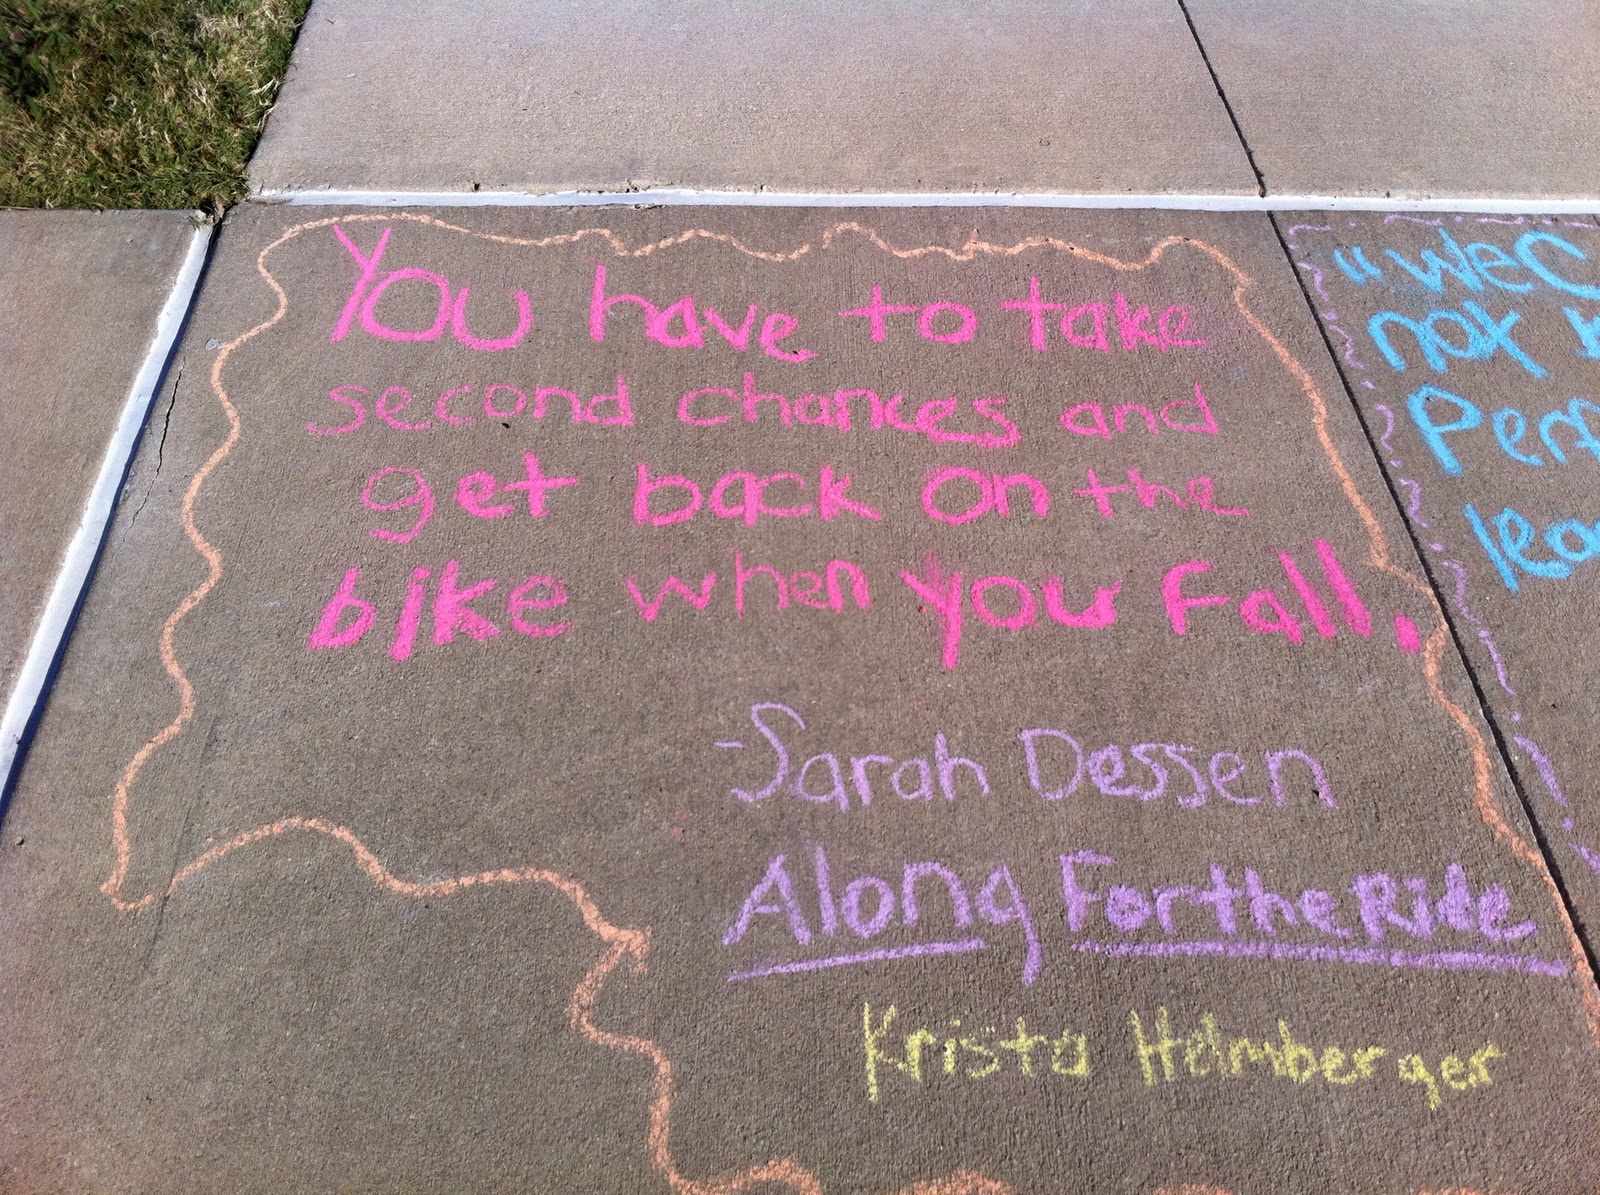 You have to take
second chances and
get back on the
bike when you fall.
-Sarah Dessen
Along For the Ride
Krista Holmberger
"We
not